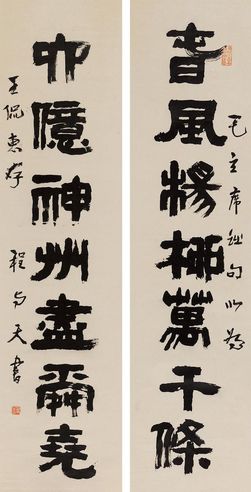 毛主席詩句以為
春風楊柳萬千條
六億神州盡舜堯
王侃惠存
程与天書